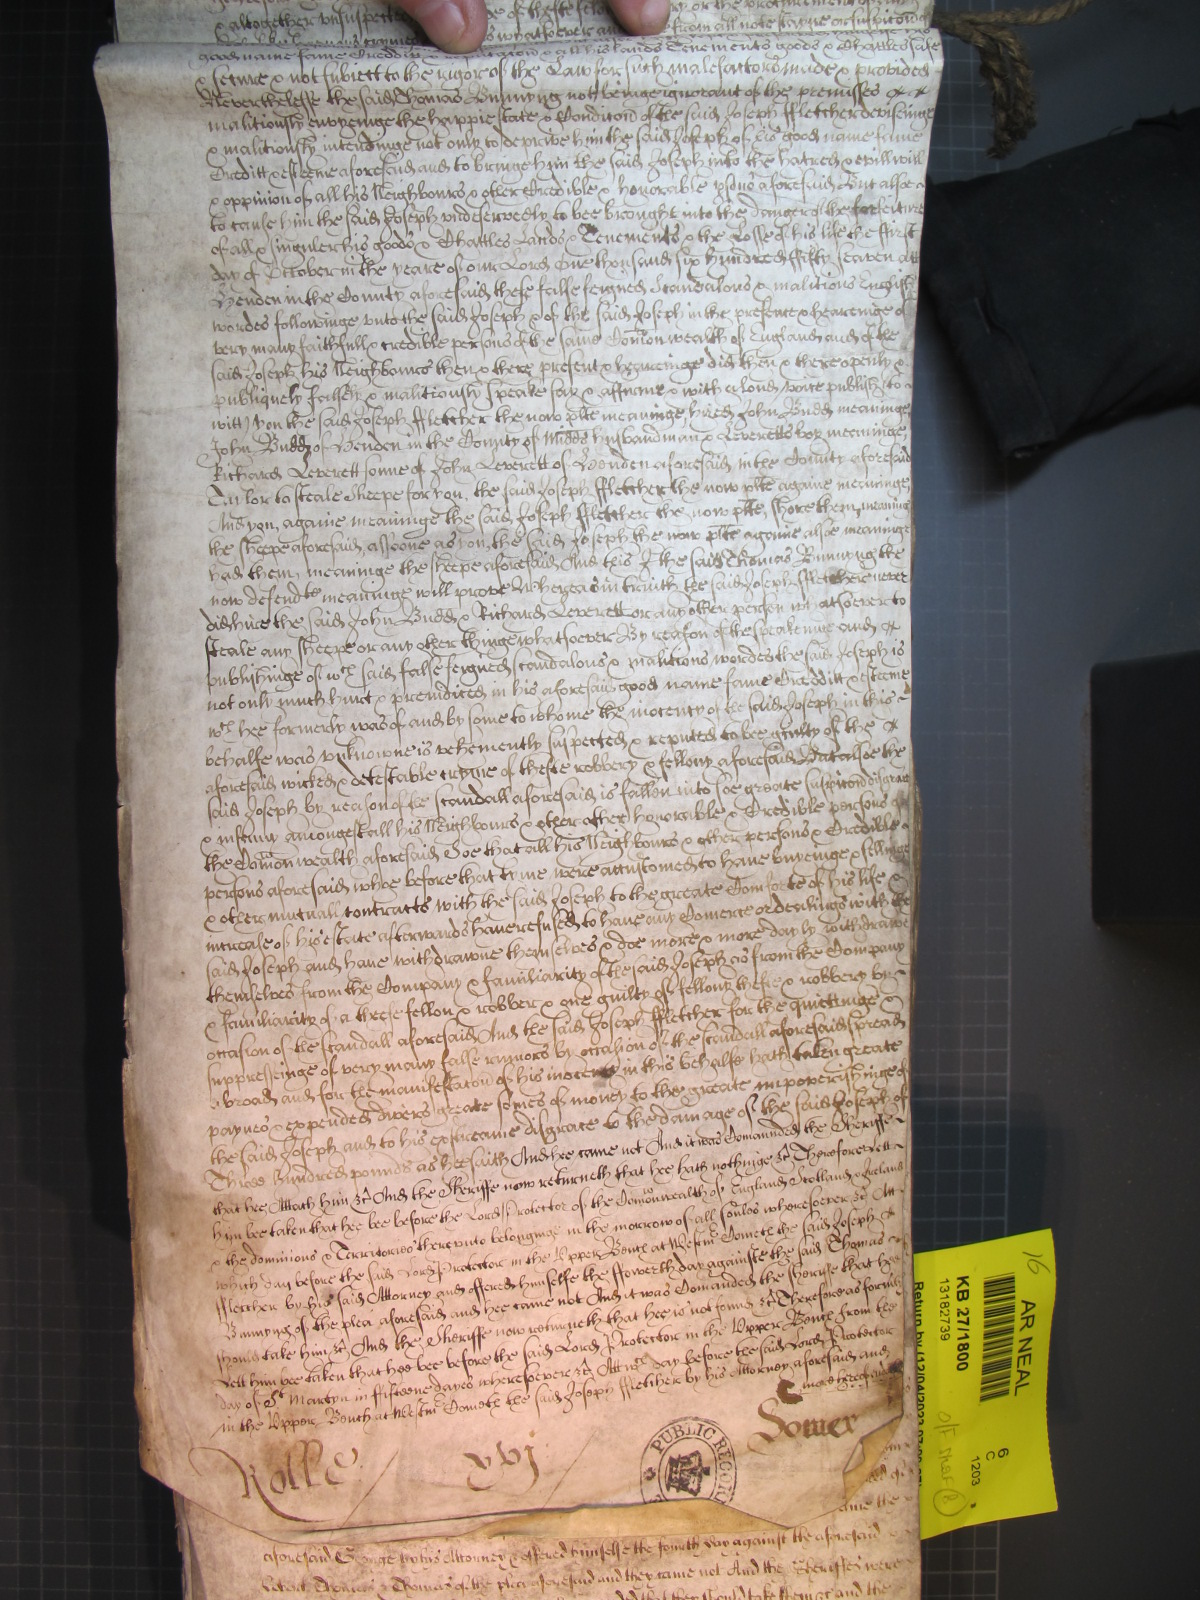 & altogether unsuspected
good name fame Creditt & reputation & all his Lands Tenements goods & Chattles safe
& secure & not subiect to the rigor of the Law for such malefactors made & provided
Neverthelesse the said Thomas Bunnyng not beinge ignorant of the premisses &
malitiously envyeinge the happie state & Condition of the said Joseph Ffletcher deviseinge
& malitiously intendinge not only to deprive him the said Joseph of his good name fame
Creditt & esteeme aforesaid and to bringe him the said Joseph into the hatred & evill will
& oppinion of all his Neighbours & other Credible & honorable psons aforesaid But alsoe
to cause him the said Joseph undeservedly to bee brought into the danger of the forfeiture
of all & singuler his goods & Chattles Lands & Tenements & the Losse of his life the ffirst
day of October in the yeare of our Lord One thousand six hundred ffifty seaven att
Henden in the County aforesaid these false feigned Scandalous & malitious English
wordes followinge unto the said Joseph & of the said Joseph in the presence & heareinge of
very many faithfull & credible persons of the same Comon wealth of England and of the
said Joseph his Neighbours then & there present & heareinge did then & there openly &
publiquely falsely & malitiously speake say & affirme & with a loud voice publish to
witt you the said Joseph Ffletcher the now plte meaninge, hired John Budd meaninge
John Budd of Henden in the County of Midds husbandman & Leveretts boy meaninge,
Richard Leverett sonne of John Leverett of Henden aforesaid in the County aforesaid
Taylor to steale Sheepe for you, the said Joseph Ffletcher the now plte againe meaninge,
And you, againe meaninge the said Joseph Ffletcher the now plte, shore them, meaninge
the sheepe aforesaid, assoone as you, the said Joseph the now plte againe alsoe meaninge
had them, meaninge the sheepe aforesaid And this I the said Thomas Bunnyng the
now defendt meaninge will prove Whereas in truith the said Joseph Ffletcher never
did hire the said John Budd & Richard Leverett or any other person whatsoever to
steale any sheepe or any other thinge whatsoever By reason of the speakeinge and
publishinge of wch said false feigned scandalous & malitious wordes the said Joseph is
not only much hurt & preiudiced in his aforesaid good name fame Credditt & esteeme
wch hee formerly was of and by some to whome the inocency of the said Joseph in this
behalfe was unknowne is vehemently suspected & reputed to bee guilty of the
aforesaid wicked & detestable cryme of thefte robbery & fellony aforesaid But alsoe the
said Joseph by reason of the scandall aforesaid is fallen into soe greate suspition disgrace
& infamy amongest all his Neighbours & other other honorable & Credible persons of
the Comon wealth aforesaid Soe that all his Neighbours & other persons & Credible
persons aforesaid whoe before that tyme were accustomed to have buyeinge & sellinge
& other mutuall contracts with the said Joseph to the greate Comforte of his life &
increase of his estate afterwards have refused to have any Comerce or dealings with the
said Joseph and have withdrawne themselves & doe more & more dayly withdrawe
themselves from the Company & familiarity of the said Joseph as from the Company
& familiarity of a theefe fellon & robber & one guilty of fellony thefte & robbery by
occasion of the scandall aforesaid And the said Joseph Ffletcher for the quiettinge &
suppresseinge of very many false rumors by occasion of the scandall aforesaid spread
abroad and for the manifestation of his inocency in this behalfe hath taken greate
paynes & expended divers greate somes of money to the greate impoverishinge of
the said Joseph and to his extreame disgrace to the damage of the said Joseph of
Three hundred pounds as hee saith And hee came not And it was Comaunded the Sheriffe
that hee Attach him &c And the Sheriffe now returneth that hee hath nothinge &c Therefore lett
him bee taken that hee bee before the Lord Protector of the Comonwealth of England Scotland & Ireland
& the dominions & Territories thereunto belonginge in the morrow of all soules wheresoever &c Att
which day before the said Lord Protector in the Upper Bench at Westmr Cometh the said Joseph
Ffletcher by his said Attorney and offered himselfe the ffowerth day againste the said Thomas
Bunnyng of the plea aforesaid and hee came not And it was Comaunded the Sheriffe that hee
should take him &c And the Sheriffe now returneth that hee is not found &c Therefore as formerly
lett him bee taken that hee bee before the said Lord Protector in the Upper Bench from the
day of St Martyn in fifteene dayes wheresoever &c Att wch day before the said Lord Protector
in the Upper Bench at Westmr Cometh the said Joseph Ffletcher by his Attorney aforesaid and
Somer
Rolle xvj
PUBLIC RECORD
aforesaid George by his Attorney & offered himselfe the fourth day against the aforesaid
of the plea aforesaid and they came not And the Sheriffes were
and the
AR NEAL
KB 27/1800
13182739
6
C
1203
16